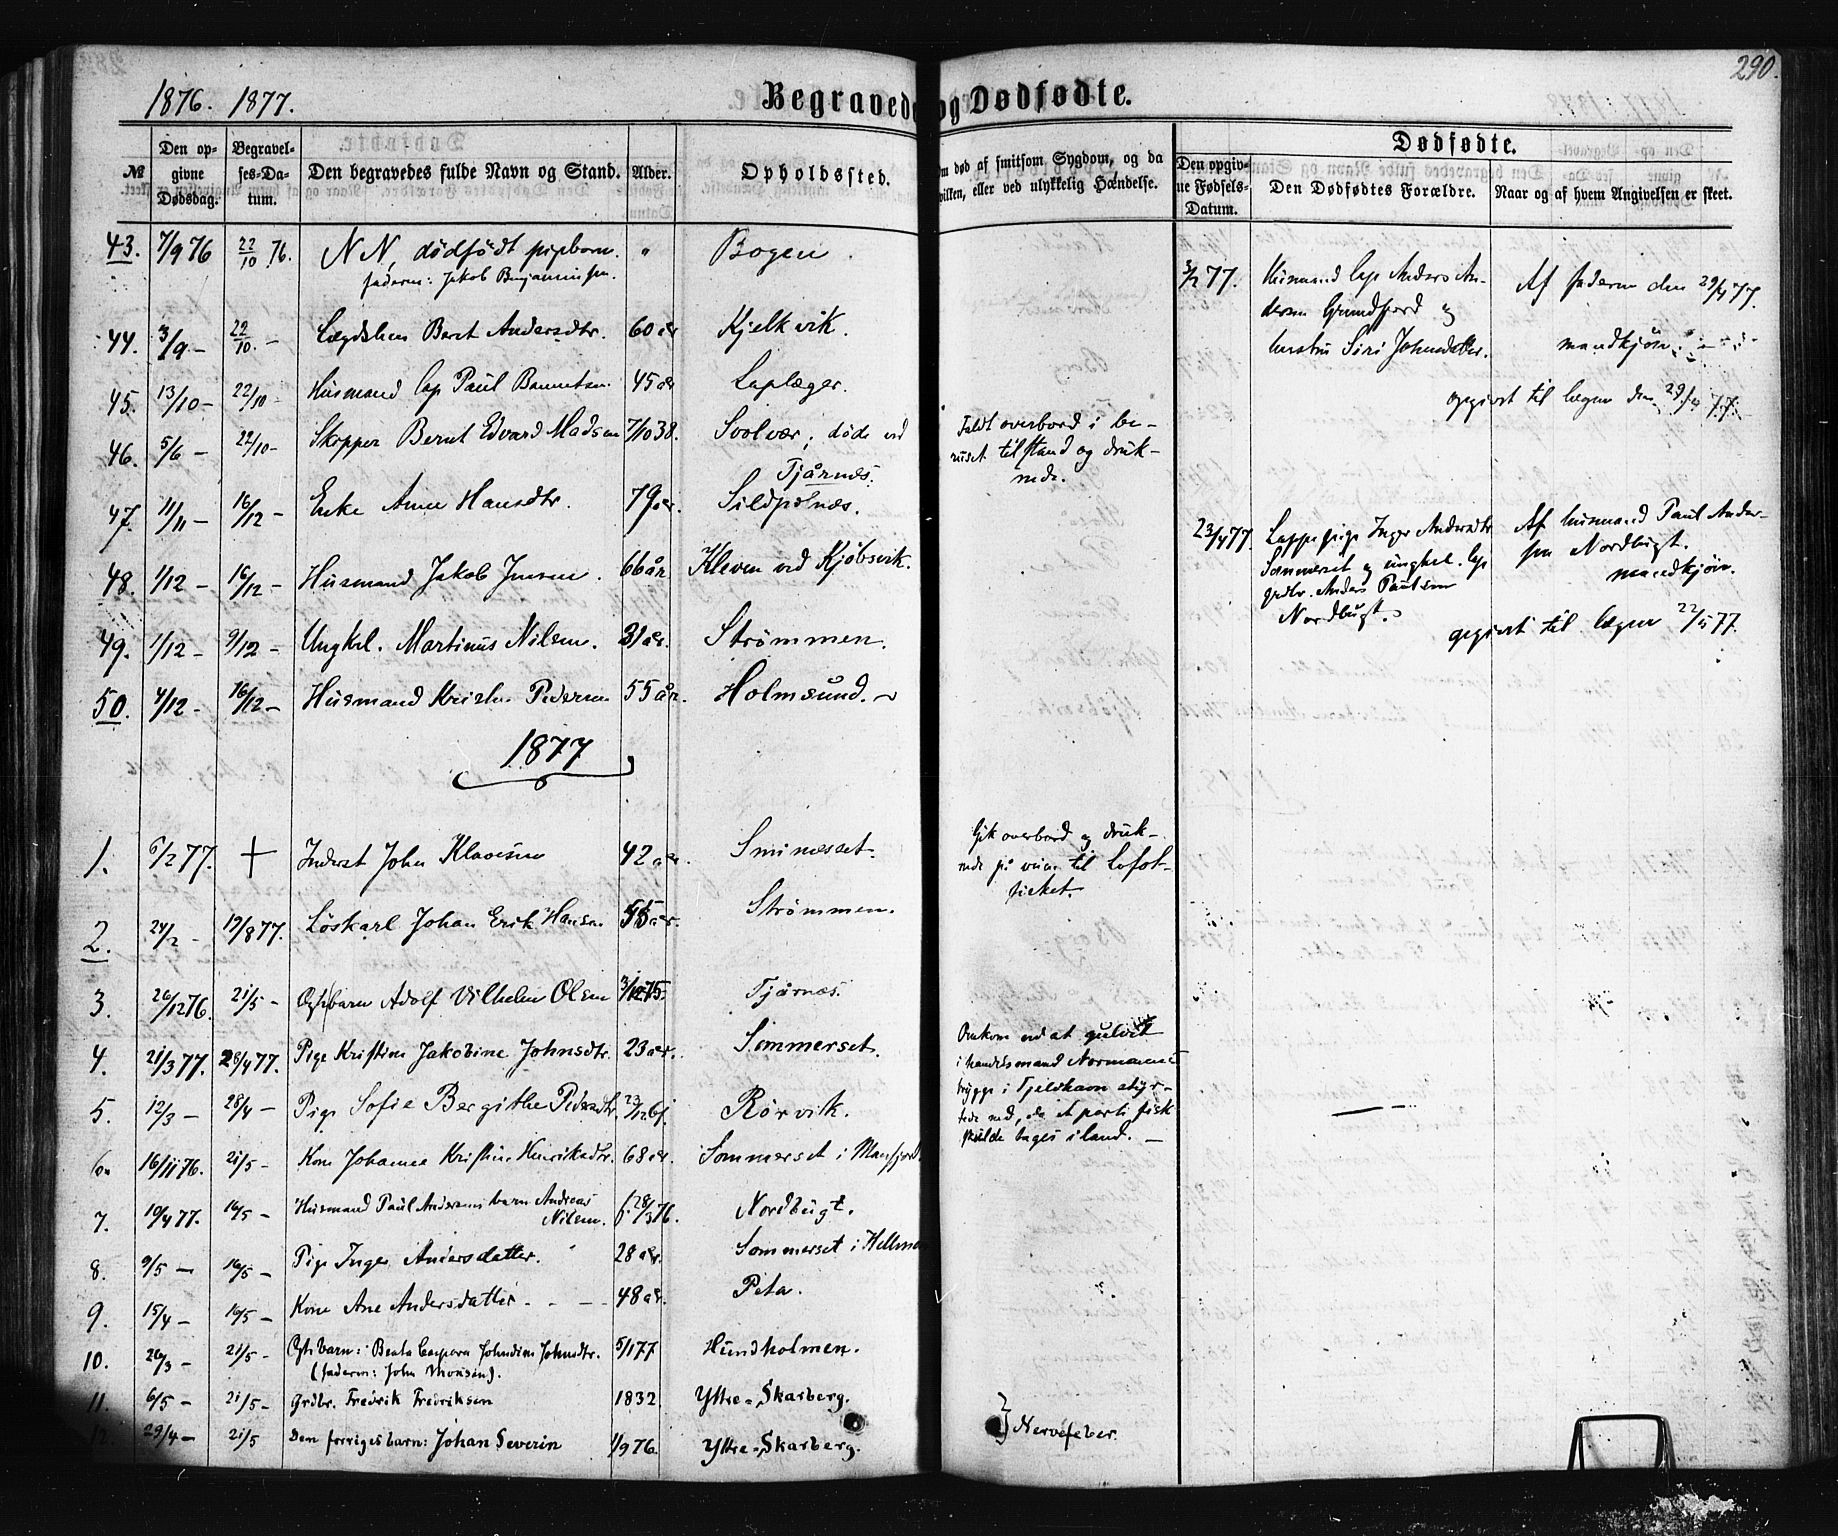 290.
1876. 1877.
Begravede og Dødfødte.
Dødfødte.
№
Den opgivne Dødsdag.
Begravelses-Datum.
Den begravedes fulde Navn og Stand.
Alder.
Opholdssted.
Om død af smitsom Sygdom, og da hvilken, eller ved ulykkelig Hændelse.
Den opgivne Fødsels-Datum.
Den Dødfødtes Forældre.
Naar og af hvem Angivelsen er skeet.
43. 7/9 76 22/10 76. N N, dødfødt pigebarn. " Bogen.
faderen: Jakob Benjaminsen.
44. 3/9 – 22/10 – Lægdslem Beret Andersdtr. 60 år Kjelkvik.
45. 13/10 – 22/10 – Husmand lap Paul 45 år Laplæger.
46. 5/6 – 22/10 – Skipper Bernt Edvard Madsen 7/10 38. Svolvær; døde ved
Tjårnæs.
Faldt overbord i be-
ruset tilstand og druk-
nede.
47. 11/11 – 16/12 – Enke Anne Hansdtr. 79 år. Sildpolnæs.
48. 1/12 – 16/12 – Husmand Jakob Jensen. 66 år Kleven ved Kjøbsvik.
49. 1/12 – 9/12 – Ungkl. Martinus Nilsen. 31 år. Strømmen.
50. 4/12 – 16/12 – Husmand Kristen Pedersen 55 år. Holmsund.
1877
1. 6/2 77. + Inderst John Klausen 42 år. Sminesset.
Gik overbord og druk-
nede på veien til Lofot-
fisket.
2. 24/2 – 19/8 77. Løskarl Johan Erik Hansen 55 år. Strømmen.
3. 26/12 76. 21/5 – Ogtsbarn Adolf Vilhelm Olsen 3/12 75 Tjårnæs.
4. 21/3 77. 28/4 77. Pige Kristine Jakobine Johnsdtr. 23 år. Sommerset.
Omkom ved at gulvet
i handelsmand Normanns
brygge i Tjeldhavn styr-
tede ned, da et parti fisk
skulde tages i land. –
5. 12/3 – 28/4 – Pige Sofie Bergithe Pedersdtr. 23/12 61. Rørvik.
6. 16/11 76. 21/5 – Kone Johanna Kristine Henriksdtr. 68 år. Sommerset i Mansfjord
7. 10/4 77. 16/5 – Husmand Paul Andersens barn Andreas
Nilsen. f. 28/3 76. Nordbugt.
8. 9/5 – 16/5 – Pige Inger Andersdatter. 28 år. Sommerset i Hellmo
9. 15/4 – 16/5 – Kone Ane Andersdatter 48 år. Peta.
10. 26/3 – 21/5 – Ogts. barn: Beata Caspara Johndine Johnsdtr. 5/1 77 Hundholmen.
(faderen: John Monsen).
11. 6/5 – 21/5 – Grdbr. Fredrik Fredriksen 1832 Yttre-Skarberg.
12. 29/4 – 21/5 Den forriges barn: Johan Severin 1/9 76. Yttre-Skarberg.
} Nervefeber.
3/2 77. Husmand lap Anders An-
dersen Grundfjord og
hustru Siri Johnsdatter.
Af faderen den 29/4 77.
mandkjøn
opgivet til lægen den 29/4 77.
23/4 77. Lappepige Inger Andersdtr.
Sommerset og ungkl. lap
grdbr. Anders Paulsen
Nordbugt.
Af husmand Paul Ander-
sen Nordbugt.
mandkjøn.
opgivet til lægen 22/5 77.